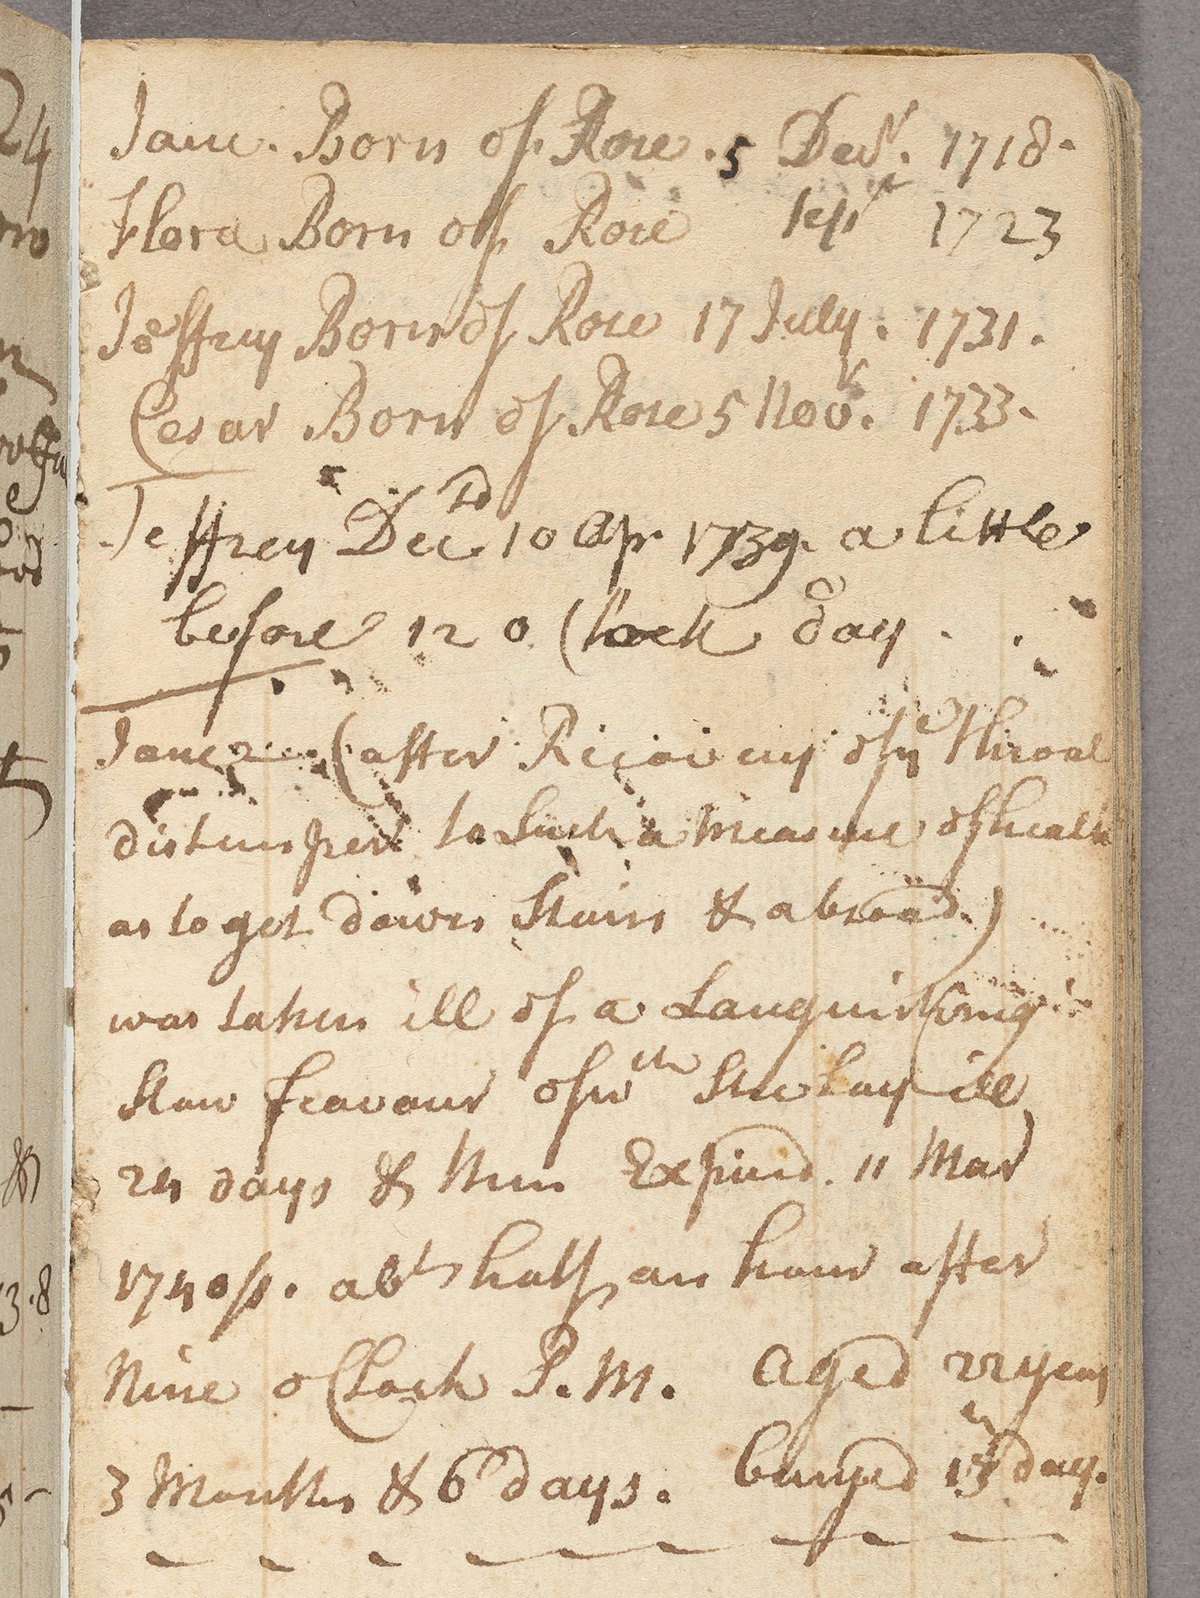 Jane. Born of Rose. 5 Decr. 1718.
Flora Born of Rose Sepr 1723
Jeffrey Born of Rose 17 July. 1731.
Cesar Born of Rose 5 Novr. 1733.
Jeffrey Decd 10 Apr. 1739. a little
before 12 o Clock day.
Jane (after Recovery of ye Throat
distemper to Such a measure of health
as to get down Stairs & abroad.)
was taken ill of a Languishing
Slow feavour of wth She Lay ill
24 days & then Expired. 11 Mar
1740/1. abt half an hour after
Nine o Clock P.M. Aged 22 years
3 Months & 6 days. buryed 13 day.